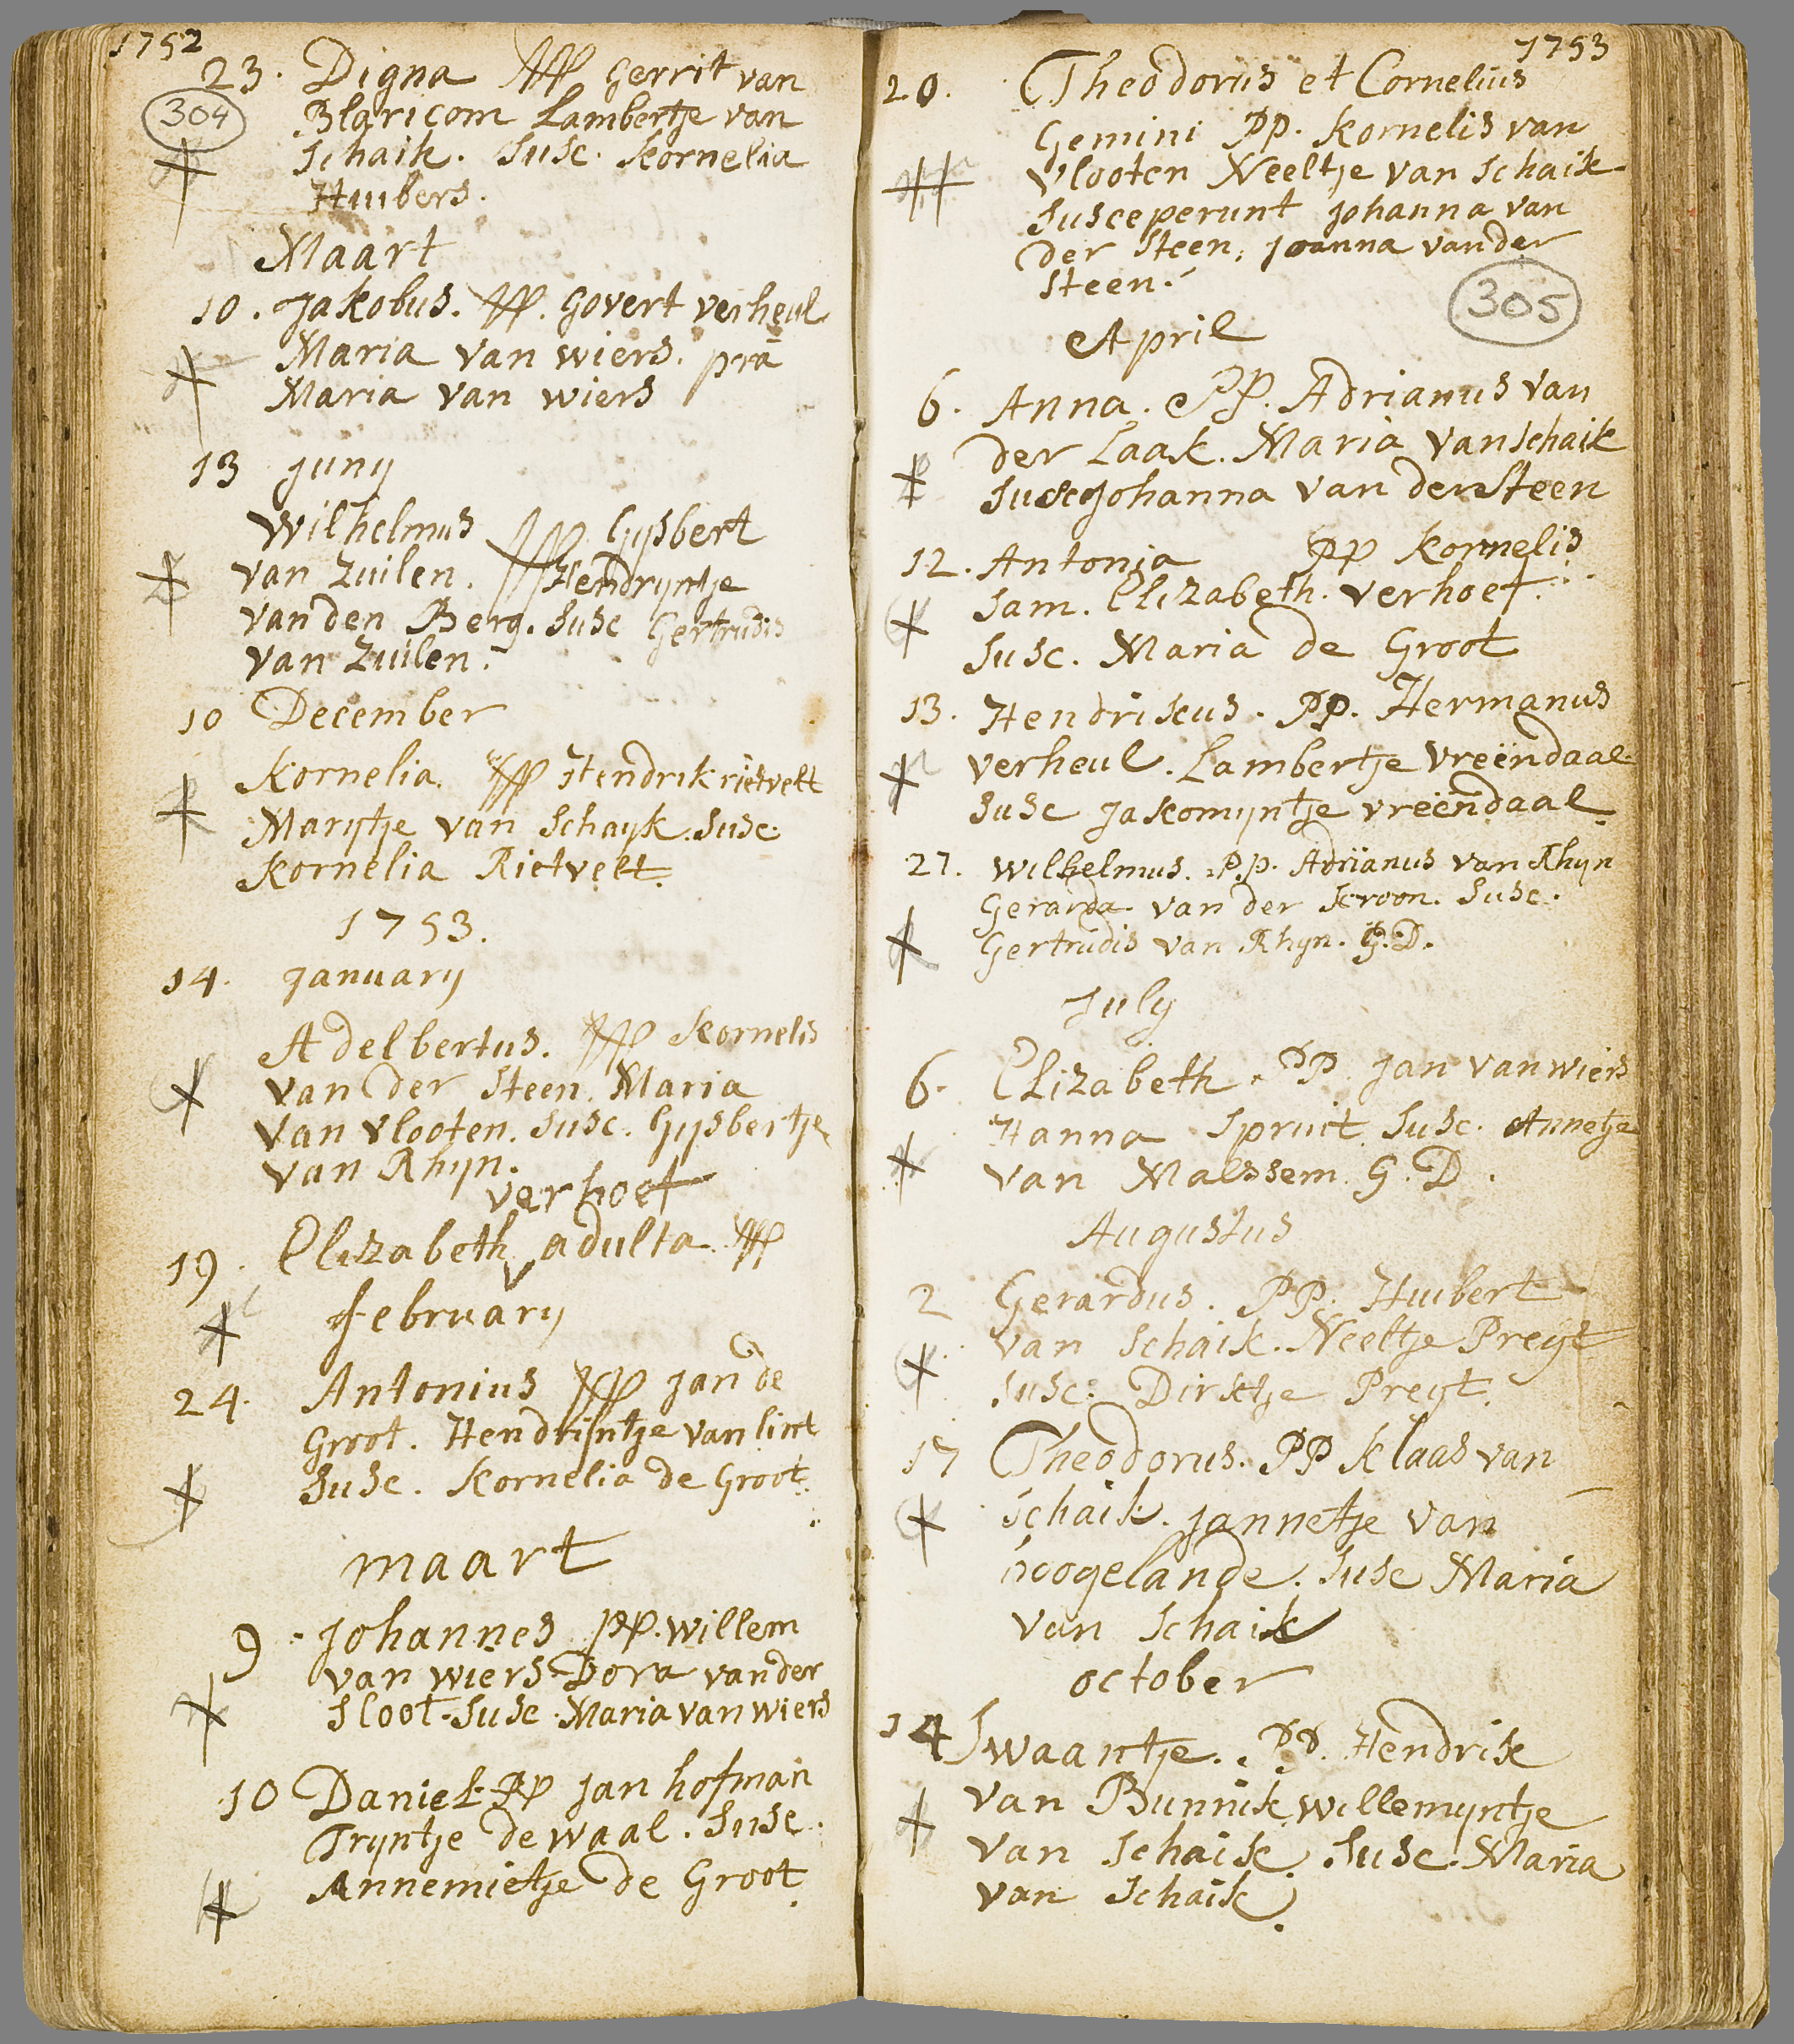 1752
23. Digna PP gerrit van
304
Blaricom Lambertje van
Schaik. Susc. Kornelia
Huibers.
Maart
10. Jakobus. PP. govert verheul
Maria van wiers. prã
Maria van wiers
13 juny
Wilhelmus PP Gysbert
van Zuilen. Hendryntje
van den Berg. Susc Gertrudis
van Zuilen.
10 December
Kornelia. PP Hendrik rietvelt
Marytje van Schayk. Susc.
Kornelia Rietvelt.
1753.
14. january
Adelbertus. PP Kornelis
van der Steen. Maria
van vlooten. Susc. Gysbertje
van Rhyn.
verhoef
19. Elizabeth adulta PP
february
24. Antonius PP jan de
Groot. Hendrijntje van lint
Susc. Kornelia de Groot.
maart
9 johannes PP. willem
van wiers Dora van der
Sloot. Susc. Maria van wiers
10 Daniel PP jan hofman
Tryntje de waal. Susc.
Annemietje de Groot.
1753
20. Theodorus et Cornelius
Gemini PP. Kornelis van
vlooten Neeltje van Schaik
Susceperunt johanna van
der Steen, joanna vander
Steen.
305
April
6. Anna. PP. Adrianus van
der Laak. Maria van Schaik
Susc johanna van der Steen
12. Antonia PP Kornelis
Sam. Elizabeth. verhoef.
Susc. Maria de Groot
13. Hendrikus. PP. Hermanus
verheul. Lambertje vreendaal.
Susc jakomyntje vreendaal.
27. Wilhelmus. P.P. Adrianus van Rhyn
Gerarda van der Kroon. Susc.
Gertrudis van Rhyn. G.D.
July
6. Elizabeth. PP jan van wiers
Hanna Spruit. Susc. Annetje
van Malssem. G. D.
Augustus
2 Gerardus. PP. Huibert
van Schaik. Neeltje Preyt
Susc. Dirktje Preyt.
17 Theodorus. PP klaas van
Schaik. jannetje van
hoogelande. Susc Maria
van Schaik
october
14 Swaantje. PP. Hendrik
van Bunnik willemyntje
van Schaik. Susc. Maria
van Schaik.